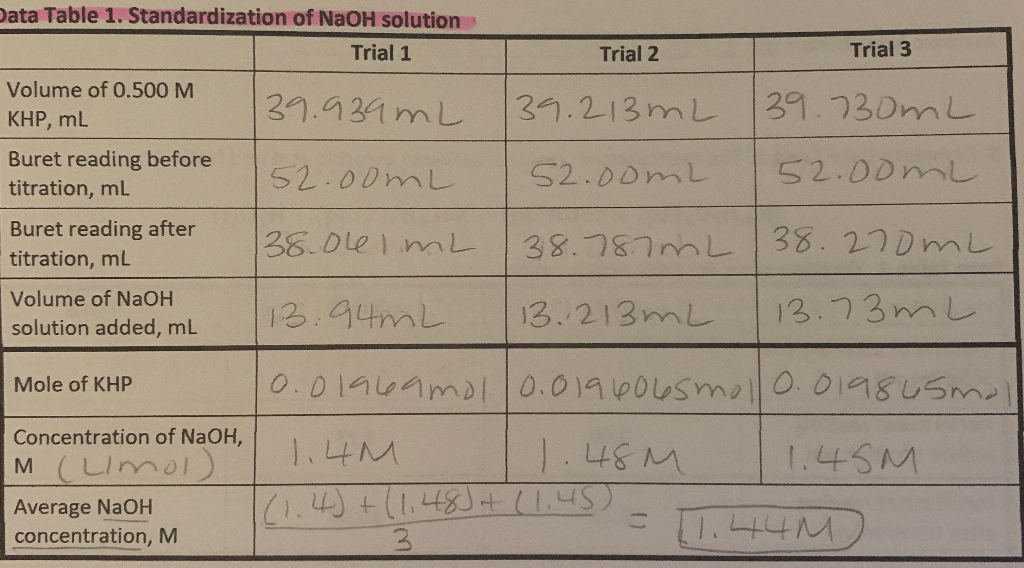 Data Table 1. Standardization of NaOH solution
Trial 1 Trial 2 Trial 3
Volume of 0.500 M
KHP, mL 39.939mL 39.213mL 39.730mL
Buret reading before
titration, mL 52.00mL 52.00mL 52.00mL
Buret reading after
titration, mL 38.061mL 38.787mL 38.270mL
Volume of NaOH
solution added, mL 13.94mL 13.213mL 13.73mL
Mole of KHP 0.01969mol 0.0196065mol 0.019865mol
Concentration of NaOH,
M (L/mol) 1.4M 1.48M 1.45M
Average NaOH
concentration, M (1.4)+(1.48)+(1.45)
3
= 1.44M